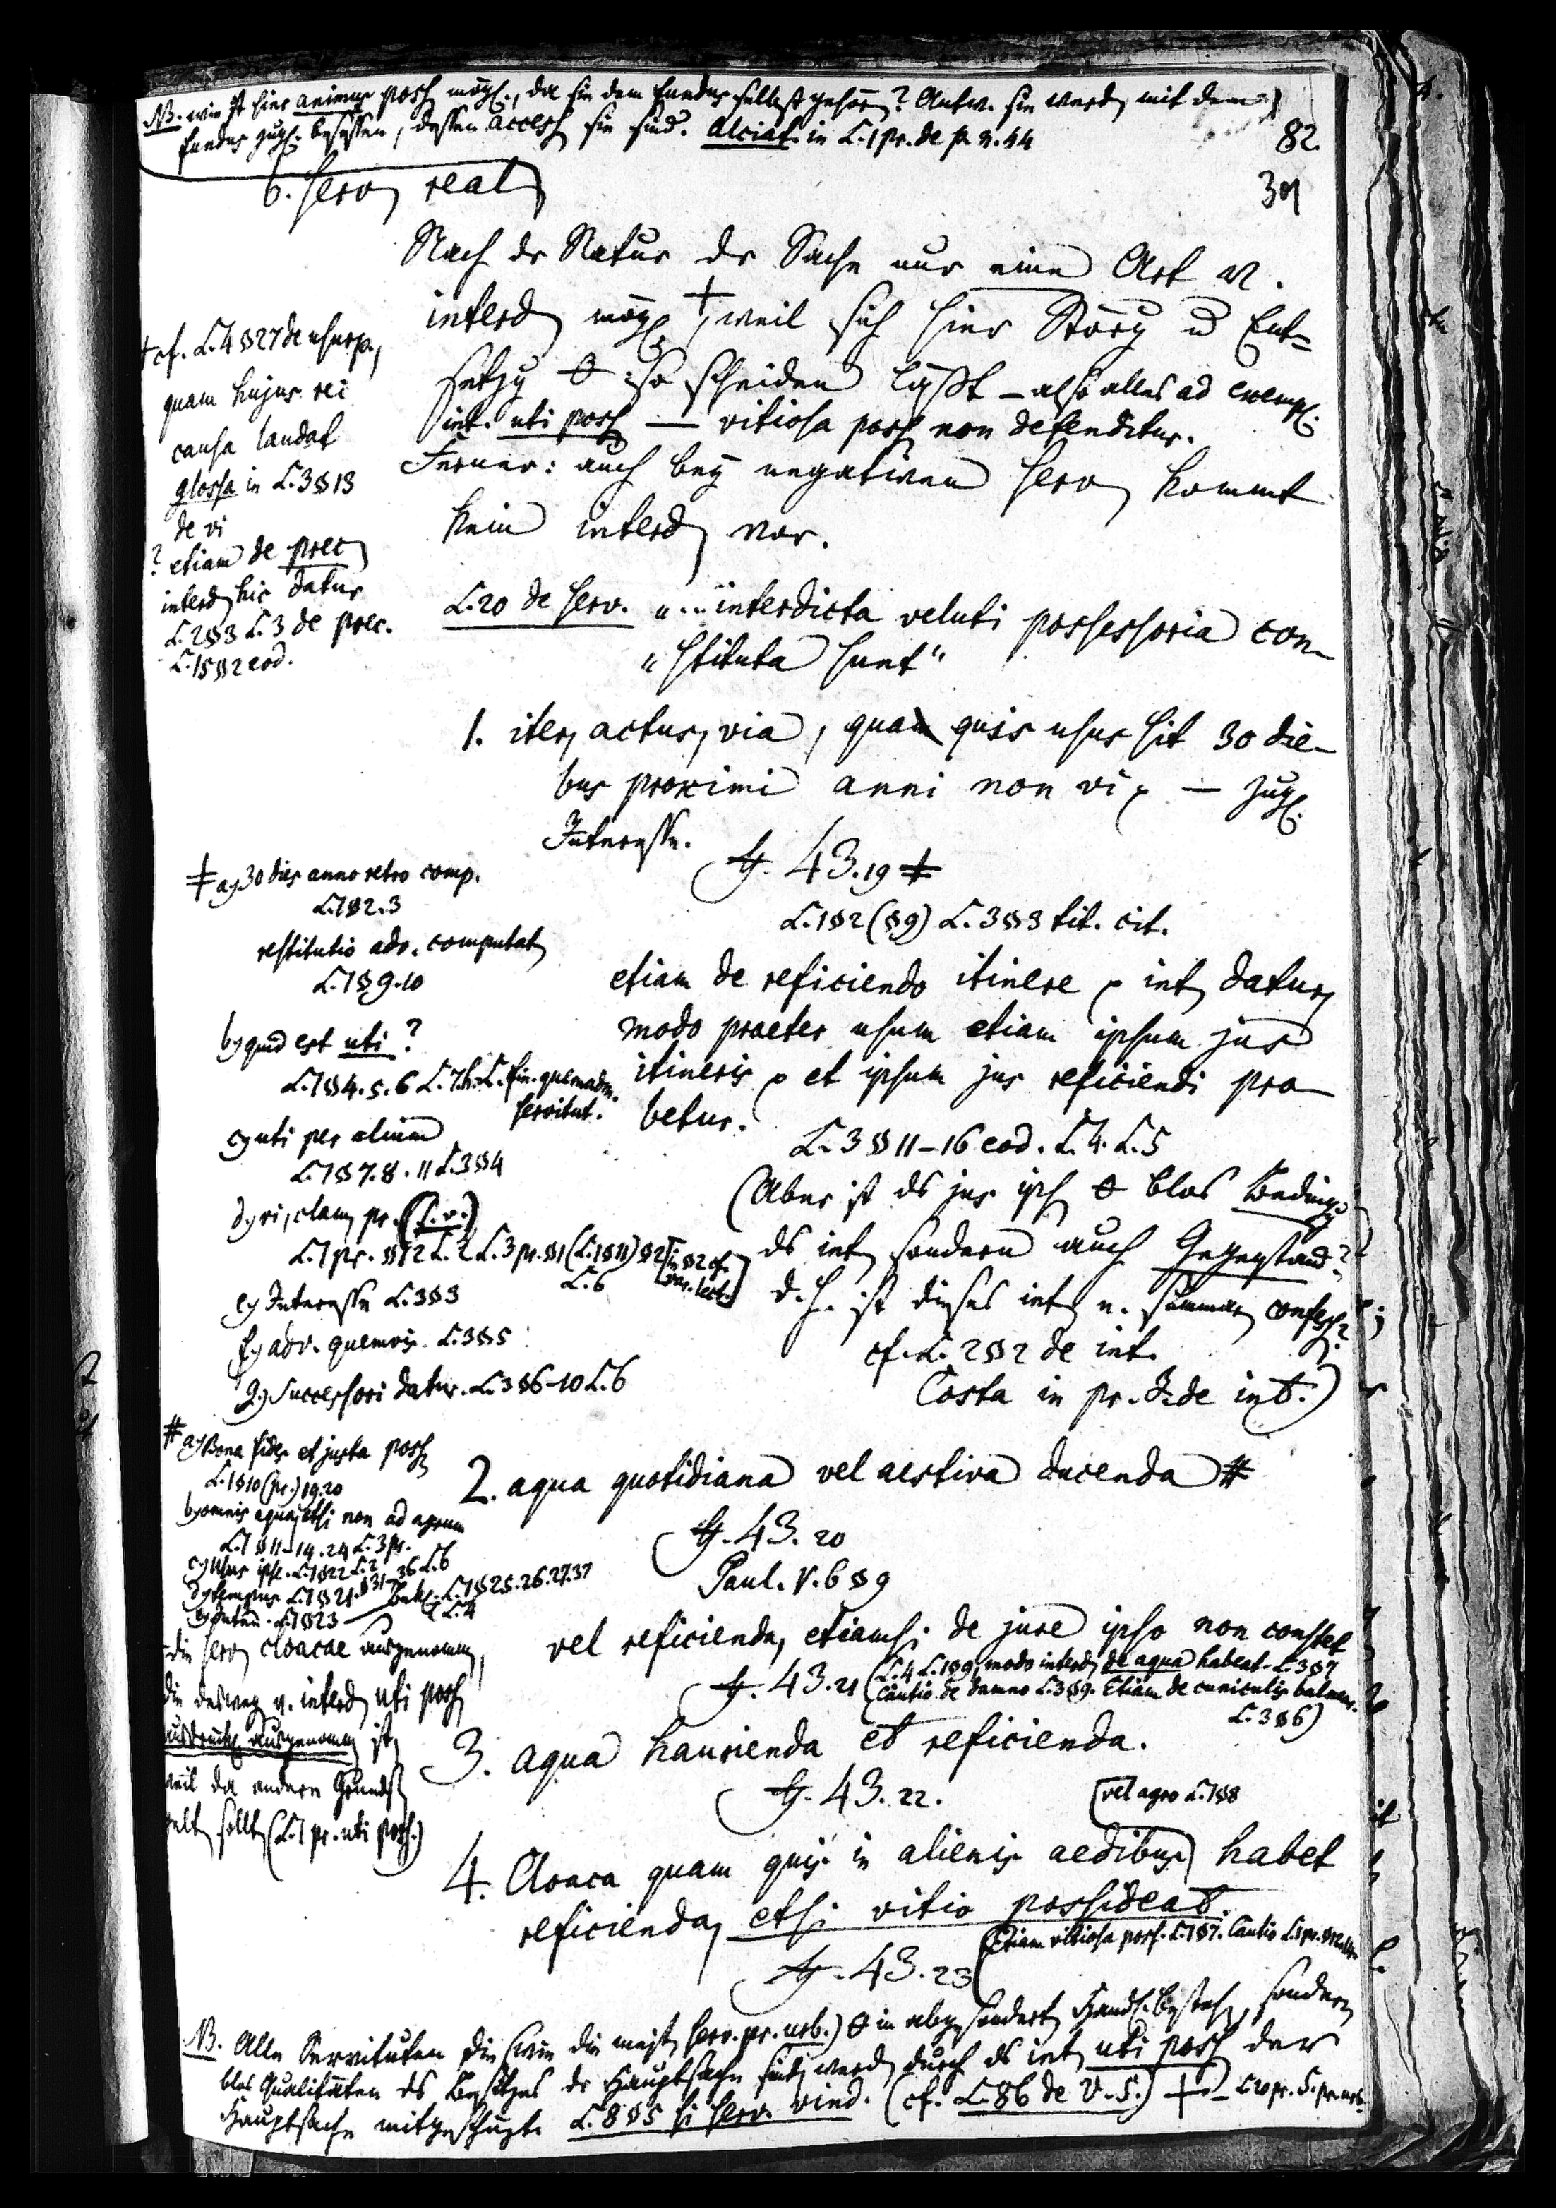 NB. wie ist hier animus poss mögl., da sie dem fundus selbst gehören? Antw. sie werd mit dem
fundus zugl. besessen, dessen access sie sind. Alciat. in L.1 pr. de p. n. 44
82
39
6. Serv real
Nach dr Natur dr Sache nur eine Art v.
interd mögl +, weil sich hier Störg u Ent-
setzg so scheiden läßt – also alles ad exempl.
int. uti poss — vitiosa poss non defenditur.
Ferner: auch bey negativen Serv kommt
kein interd vor.
+ cf. L.4 § 27 de usurp.,
quam hujus rei
causa laudat
glossa in L.3 § 13
de vi
? etiam de prec
interd hic datur
L.2 § 3 L.3 de prec.
L.15 § 2 eod.
L.20 de serv. "... interdicta veluti possessoria con-
"stituta sunt"
1. iter, actus, via, qua quis usus sit 30 die-
bus proximi anni non vi — zugl.
Interesse.
tt. 43.19 ‡
L.1 § 2 (§ 9) L.3 § 3 tit. cit.
etiam de reficiendo itinere int datur,
modo praeter usum etiam ipsum jus
itineris et ipsum jus reficiendi pro-
betur.
L.3 § 11–16 eod. L.4. L.5
(Aber ist ds jus ips blos Beding
ds int sondern auch Gegenstand?
d. h. ist dieses int n. summar confess?
cf. L.2 § 2 de int.
Costa in pr. J. de int.)
‡ a) 30 dies anno retro comp.
L.1 § 2.3
restitutio adv. computat
L.1 § 9.10
b) quid est uti?
L.1 § 4.5.6 L.7 h. L. fin. quemadm.
servitut.
c) uti per alium
L.1 § 7.8.11 L.3 § 4
d) vi, clam, pr. (L. v.)
L.1 pr. § 12 L.2 L.3 pr. § 1 (L.1 § 11) § 2 [in § 2 cf.
L.6 var. lect.]
e) Interesse L.3 § 3
f) adv. quemvis L.3 § 5
g) Successori datur. L.3 § 6–10 L.6
2. aqua quotidiana vel aestiva ducenda #
tt. 43.20
Paul. V. 6 § 9
vel reficienda, etiamsi de jure ipso non constet
tt. 43.21 (L.4 L.1 § 9, modo interd de aqua habeat L.3 § 7
Cautio de damno L.3 § 9. Etiam de cuniculis balnear.
L.3 § 6)
# a) Bona fides et justa poss
L.1 § 10 (pr.) 19.20
b) omnis aqua, etsi non ad agrum
L.1 § 11–14.24 L.3 pr.
c) Usus ipse. L.1 § 22 L.2
d) tempus. L.1 § 21. § 31–36 L.6
e) Intend. L.1 § 23 — L.1 § 25.26.27.37
L.4
die Serv cloacae ausgenomm,
die desweg v. interd uti poss
ausdrückl ausgenomm ist,
weil da andere Grunds
gelt sollt (L.1 pr. uti poss.)
3. aqua haurienda et reficienda.
tt. 43.22.
(vel agro L.1 § 8
4. Cloaca quam quis in alienis aedibus habet
reficienda, etsi vitio possideat.
tt. 43.23 (Etiam vitiosa poss. L.1 § 7. Cautio L.1 pr.
NB. Alle Servituten die (wie die meist serv. pr. urb.) in abgesondert Handl. besteh, sondern
blos Qualitäten ds Besitzes dr Hauptsache sind, werd durch ds int uti poss der
Hauptsache mitgeschützt L.8 § 5 si serv. vind. (cf. L.86 de V. S.) + – L.20 pr. S. pr. urb.